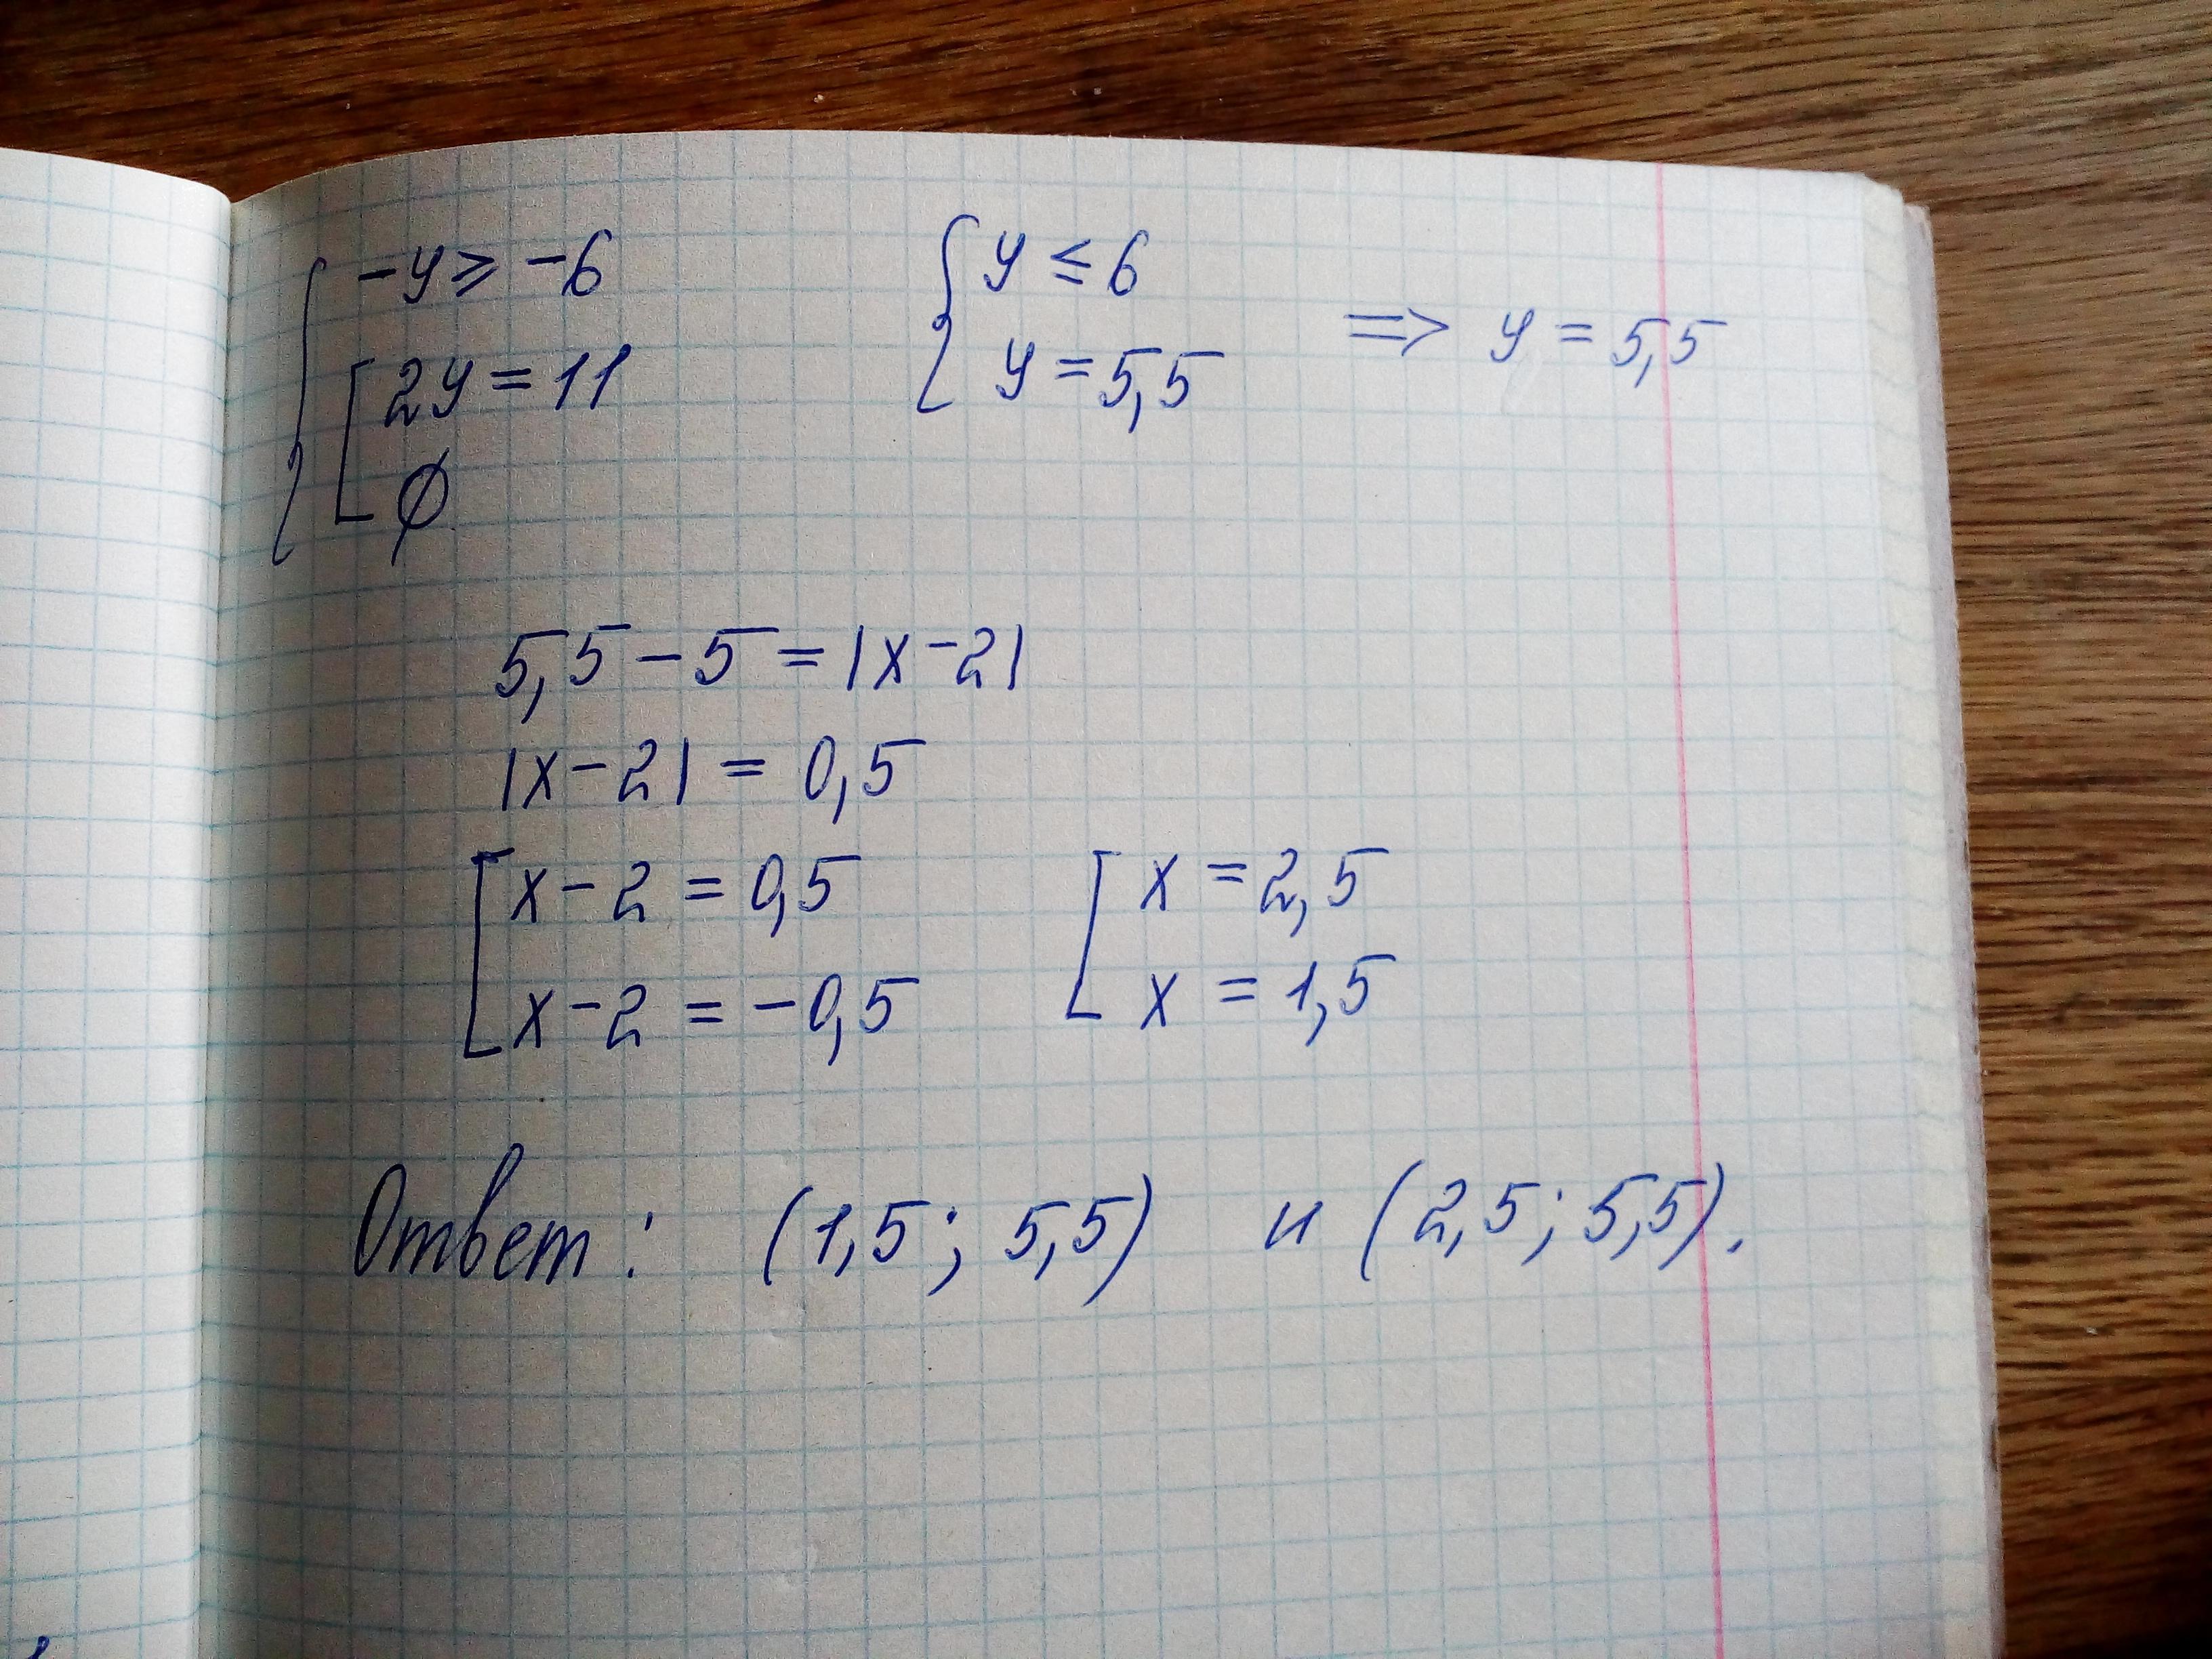 -y ≥ -6 y ≤ 6
2y = 11 y = 5,5 => y = 5,5
∅
5,5 - 5 = |x - 2|
|x - 2| = 0,5
x - 2 = 0,5 x = 2,5
x - 2 = -0,5 x = 1,5
Ответ: (1,5; 5,5) и (2,5; 5,5).